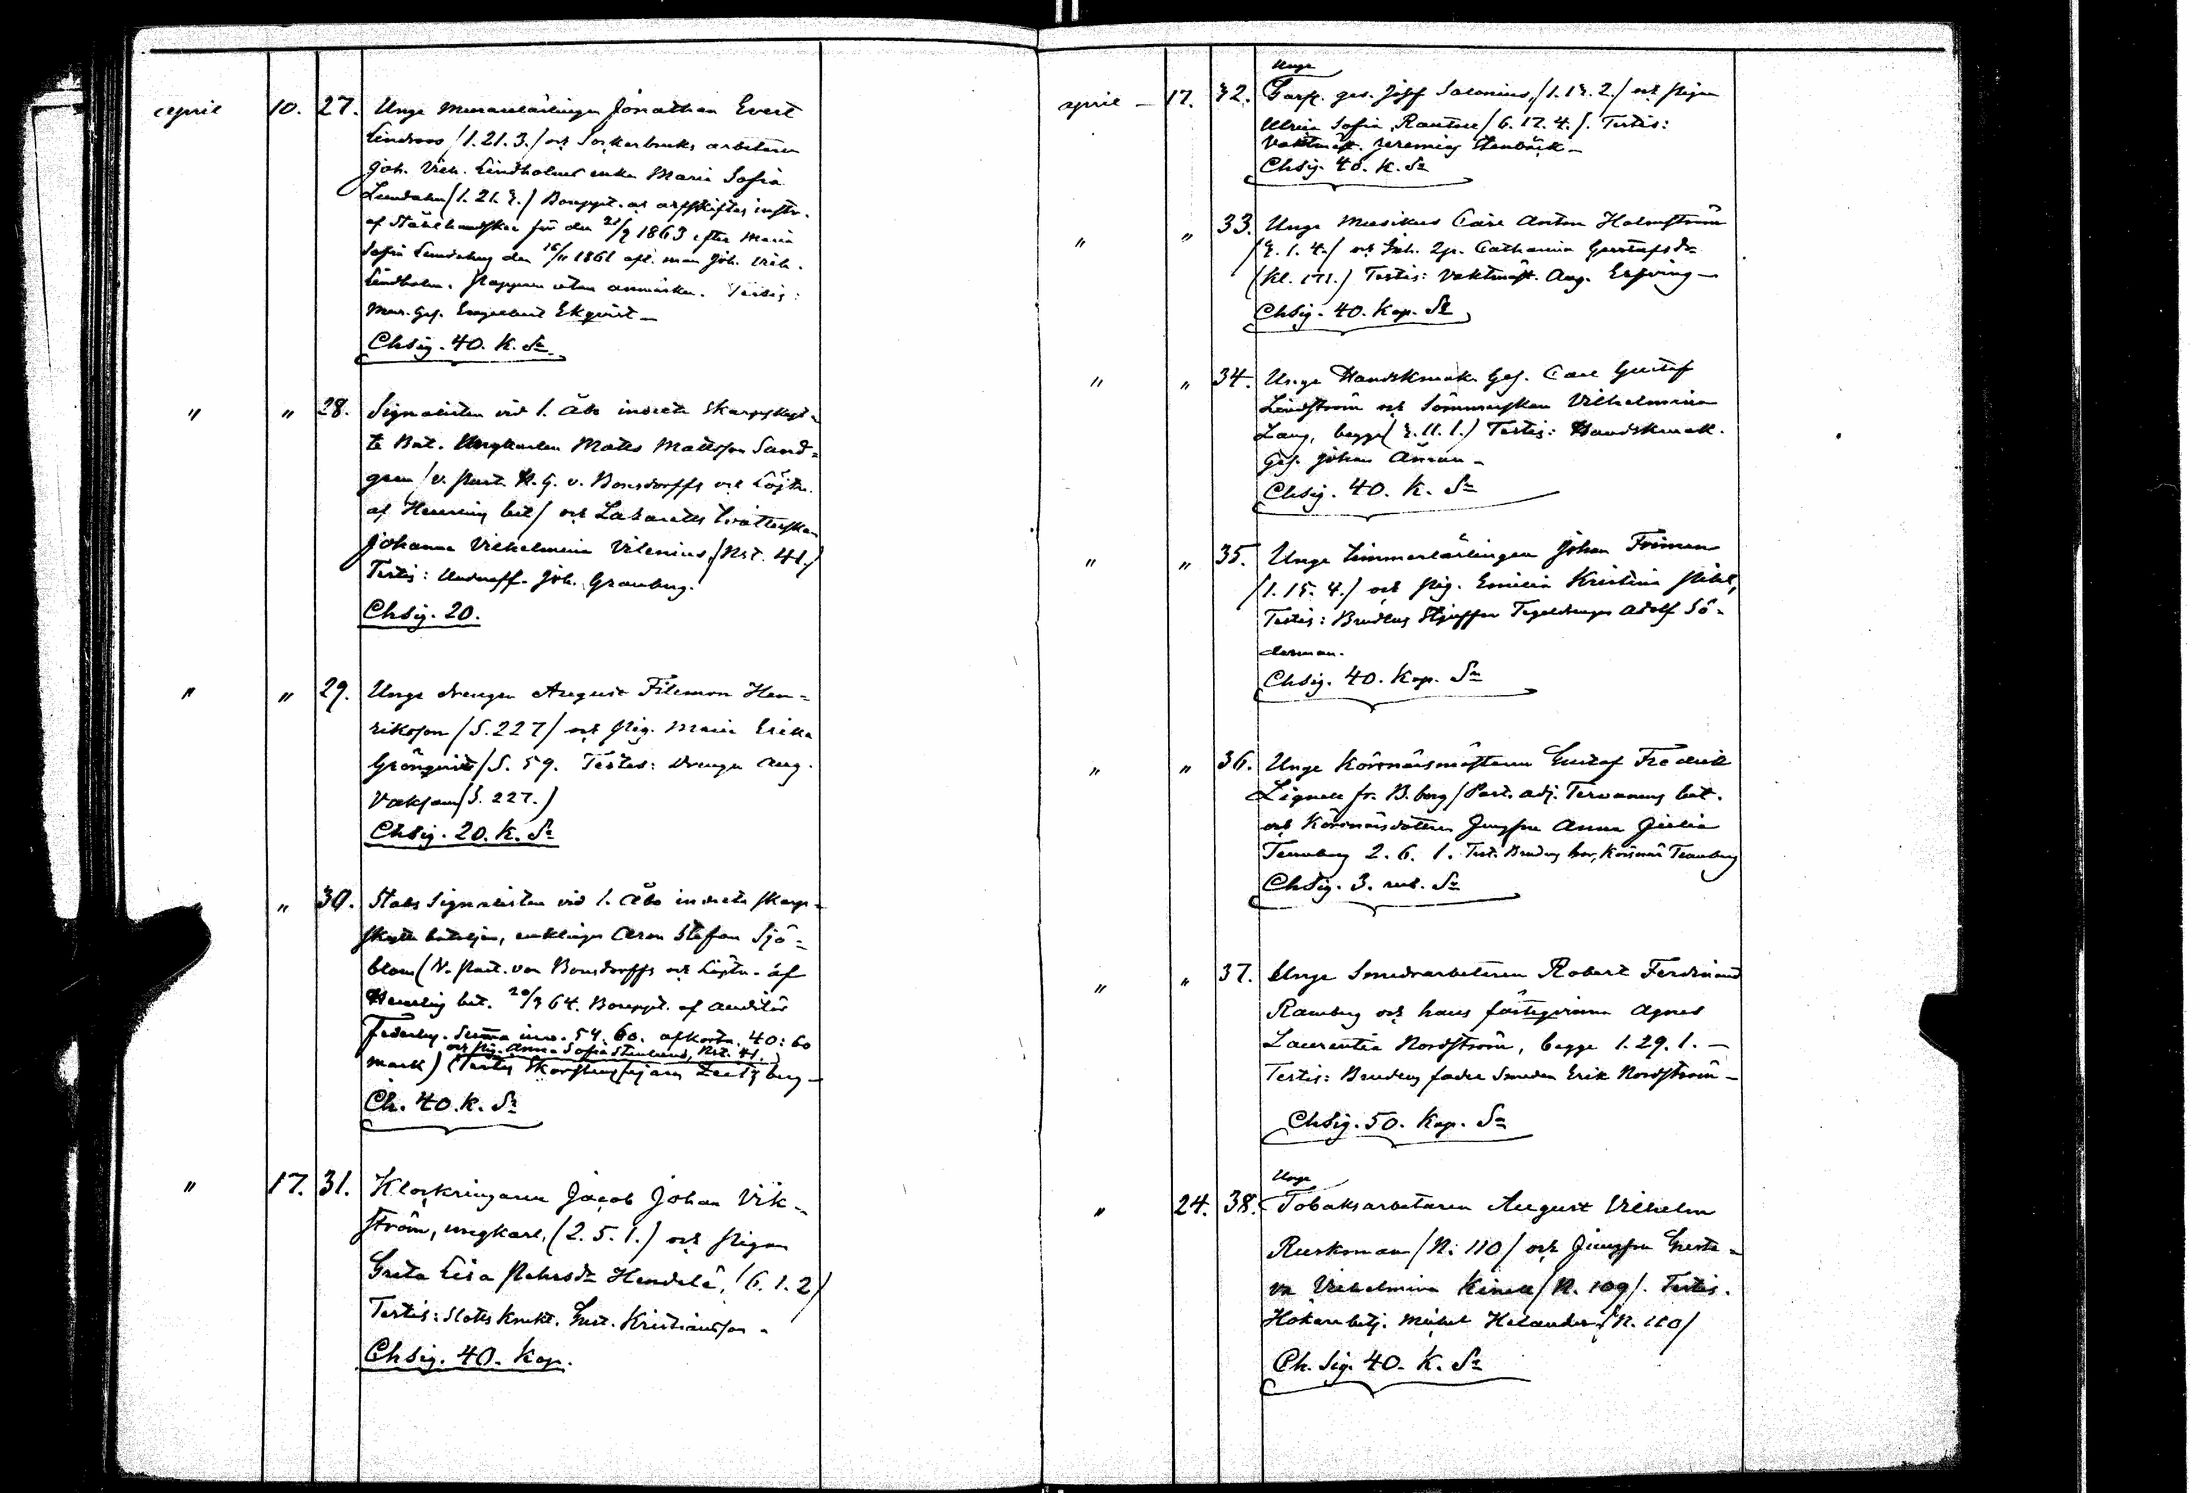 april 10. 27. Unge Murarelärlingen Jonathan Evert
Lindroos /1.21.3./ och Sockerbruks arbetaren
Joh. Vilh. Lindholms enka Maria Sofia
Lundahn (1.21.3.) Bouppt. och arfskiftes instr.
af Stålhandske för den 21/9 1863 efter Maria
Sofia Lundahns den 16/11 1861 afl. man Joh. Vilh.
Lindholm. Papperen utan anmärkn. Testis:
Mur. Ges. Engelbert Ekqvist –
Chsig. 40. K. Sr
" " 28. Signalisten vid 1. Åbo indelta Skarpskyt-
te Bat. Ungkarlen Matts Mattsson Sand-
gren /v. Past. H. G. v. Bonsdorffs och Löjtn.
af Heurlins bet/ och Lazaretts tvätterskan
Johanna Vilhelmina Vilenius, /Nst. 41./
Testis: Underoff. Joh. Granberg.
Chsig. 20.
" " 29. Unge drengen August Filemon Hen-
riksson /S. 227/ och Pig. Maria Erika
Grönqvist /S. 59. Testes: drengen Aug.
(S. 227.)
Chsig. 20. K. Sr
" 30. Stabs Signalisten vid 1. Åbo indelta Skarp-
skytte bataljon, enklingen Aron Stefan Sjö-
blom (V. Past. von Bonsdorffs och Löjtn. af
Heurlins bet. 20/3 64. Bouppt. af Auditör
Federley. Summa inv. 54. 60. afkortn. 40: 60
och Pig. Anna Sofia Nst. 41.)
mark) (Testis Skorstensfejaren
Ch. 40. K. Sr
" 17. 31. Klockringaren Jacob Johan Vik-
ström, ungkarl, (2. 5. 1.) och Pigan
Greta Lisa Hendelä, (6. 1. 2)
Testis: Slotts Knekt. Gust. Kristiansson.
Chsig. 40. Kop.
april – 17. 32. Unge
Garf. ges. Josef Salonius, /1. 13. 2./ och Pigan
Ulrica Sofia Rantsen /6. 17. 4./. Testis:
Vaktmäst. Jeremias Stenbäck –
Chsig. 40. K. Sr
" " 33. Unge Musikus Carl Anton Holmström
/3. 1. 4./ och Catharina Gustafsdr
(Kl. 171.) Testis: Vaktmäst. Aug. Erfving –
Chsig. 40. Kop. Sr
" " 34. Unge Handskmak. Ges. Carl Gustaf
Lindström och Sömmerskan Vilhelmina
Lang, begge (3. 11. 1.) Testis: Handskmak.
Ges. Johan Åman –
Chsig. 40. K. Sr
" " 35. Unge timmerlärlingen Johan Friman
/1. 15. 4./ och Pig. Emilia Kristina
Testis: Brudens Styffar Tegeldrengen Adolf Sö-
derman.
Chsig. 40. Kop. Sr
" " 36. Unge Körsnärsmästaren Gustaf Fredrik
Lignell fr. B.borg /Past. adj. Tervanens bet.
och Körsnärsdottern Jungfru Anna Julia
Ternberg 2. 6. 1. Test. Brudens bror, Körsnär Ternberg
Chsig. 3. rub. Sr
" " 37. Unge Smedarbetaren Robert Ferdinand
Ramberg och hans fästeqvinna Agnes
Laurentia Nordström, begge 1. 29. 1. –
Testis: Brudens fader Smeden Erik Nordström –
Chsig. 50. Kop. Sr
" 24. 38. Unge
Tobaksarbetaren August Vilhelm
Ruskman /N: 110/ och Jungfru Gusta-
va Vilhelmina Kinell /N. 109/. Testis.
Hökarebetj. Mickel Helander, /N. 110/
Ch. Sig. 40. K. Sr